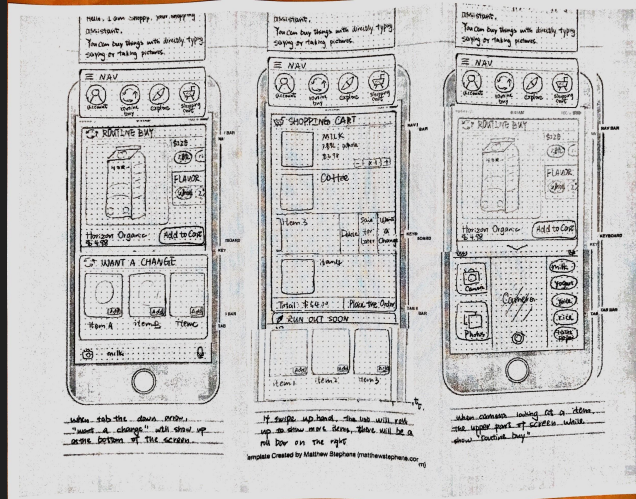 Hello, I am Snappy, your shopping
assistant.
You can buy things with directly typing
saying or taking pictures.
NAV
account
routine
buy
explore
shopping
cart
ROUTINE BUY
SIZE
FLAVOR
Horizon Organic
$4.98
Add to Cart
WANT A CHANGE
Add
Add
Add
item A
item B
item C
milk
BAR
KEY
BOARD
TAB
BAR
when tab the down arrow,
"want a change" will show up
at the bottom of the screen.
assistant.
You can buy things with directly typing
saying or taking pictures.
NAV
account
routine
buy
explore
shopping
cart
SHOPPING CART
MILK
whole
$4.98
Coffee
Item 3
Delete
Save
for
later
Want
a
Change
Total: $64.00
Place the Order
RUN OUT SOON
Add
Add
Add
item 1
item 2
item 3
NAV
BAR
KEY
BOARD
TAB
BAR
If swipe up hand, the tab will roll
up to show more items, there will be a
roll bar on the right
Template Created by Matthew Stephens (matthewstephens.com)
assistant.
You can buy things with directly typing
saying or taking pictures.
NAV
account
routine
buy
explore
shopping
cart
ROUTINE BUY
SIZE
FLAVOR
Horizon Organic
$4.98
Add to Cart
Camera
Photos
Camera
milk
yogurt
juice
rice
toilet
paper
NAV BAR
KEYBOARD
TAB BAR
when camera looking at a item,
the upper part of screen while
show "routine buy"